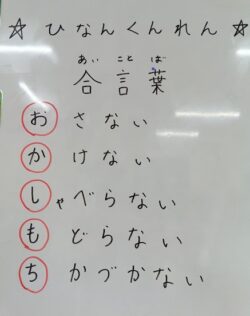 ☆ ひなんくんれん ☆
あいことば
合言葉
おさない
かけない
しゃべらない
もどらない
ちかづかない